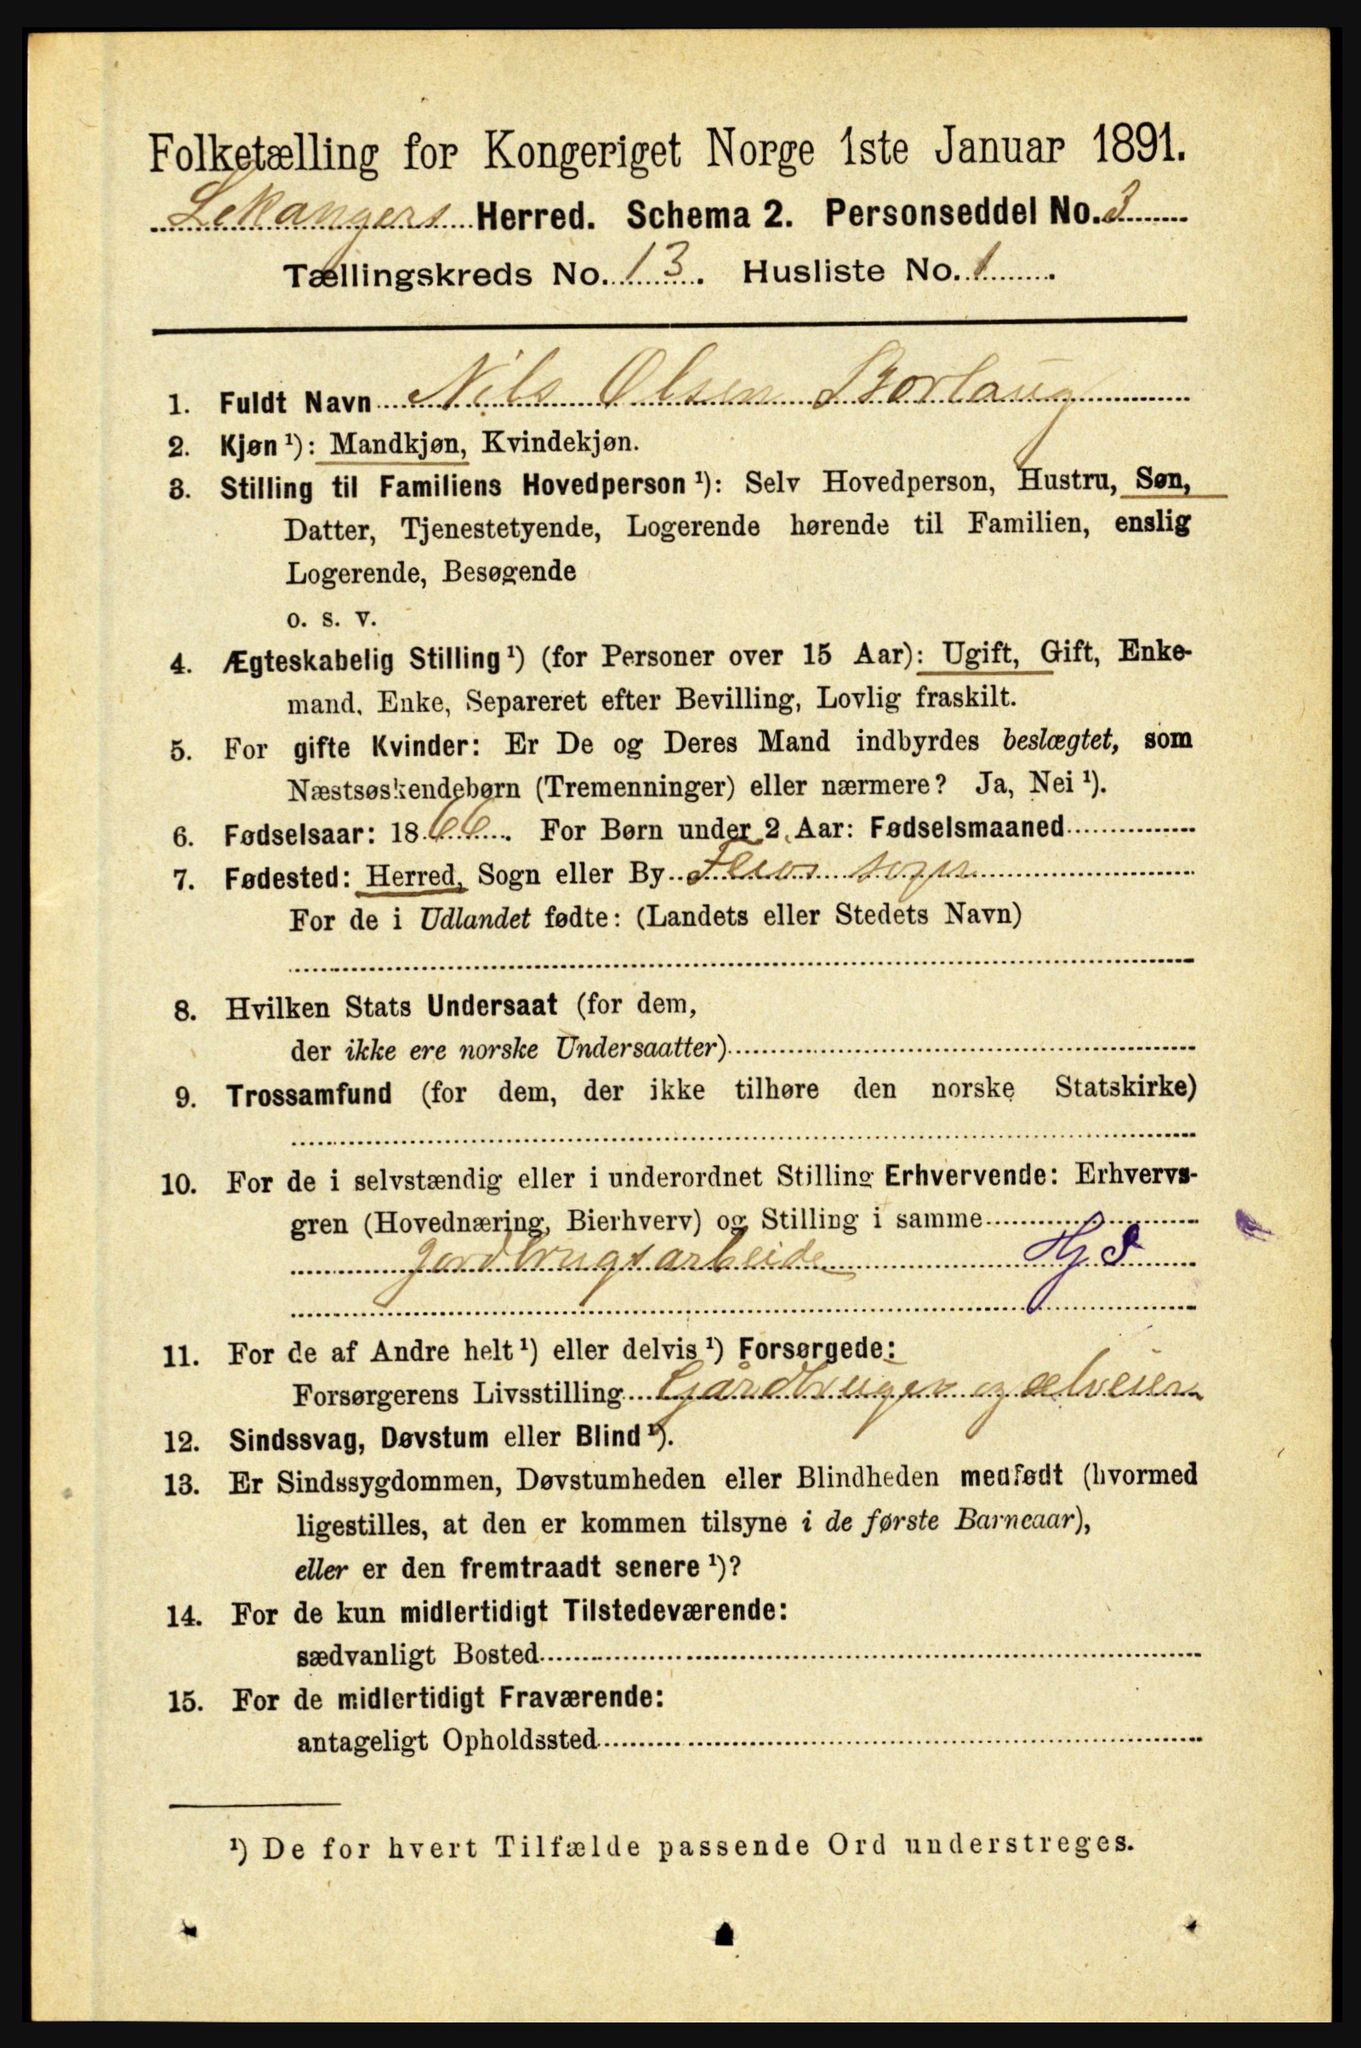 Folketælling for Kongeriget Norge 1ste Januar 1891.
Lekangers Herred. Schema 2. Personseddel No. 3
Tællingskreds No. 13. Husliste No. 1.
1. Fuldt Navn Nils Olsen Borlaug
2. Kjøn ¹): Mandkjøn, Kvindekjøn.
3. Stilling til Familiens Hovedperson ¹): Selv Hovedperson, Hustru, Søn,
Datter, Tjenestetyende, Logerende hørende til Familien, enslig
Logerende, Besøgende
o. s. v.
4. Ægteskabelig Stilling ¹) (for Personer over 15 Aar): Ugift, Gift, Enke-
mand, Enke, Separeret efter Bevilling, Lovlig fraskilt.
5. For gifte Kvinder: Er De og Deres Mand indbyrdes beslægtet, som
Næstsøskendebørn (Tremenninger) eller nærmere? Ja, Nei ¹).
6. Fødselsaar: 1866. For Børn under 2 Aar: Fødselsmaaned
7. Fødested: Herred, Sogn eller By Feios sogn
For de i Udlandet fødte: (Landets eller Stedets Navn)
8. Hvilken Stats Undersaat (for dem,
der ikke ere norske Undersaatter)
9. Trossamfund (for dem, der ikke tilhøre den norske Statskirke)
10. For de i selvstændig eller i underordnet Stilling Erhvervende: Erhvervs-
gren (Hovednæring, Bierhverv) og Stilling i samme
Jordbrugsarbeide HjS
11. For de af Andre helt ¹) eller delvis ¹) Forsørgede:
Forsørgerens Livsstilling Gårdbruger og selveier
12. Sindssvag, Døvstum eller Blind ¹).
13. Er Sindssygdommen, Døvstumheden eller Blindheden medfødt (hvormed
ligestilles, at den er kommen tilsyne i de første Barneaar),
eller er den fremtraadt senere ¹)?
14. For de kun midlertidigt Tilstedeværende:
sædvanligt Bosted
15. For de midlertidigt Fraværende:
antageligt Opholdssted
¹) De for hvert Tilfælde passende Ord understreges.